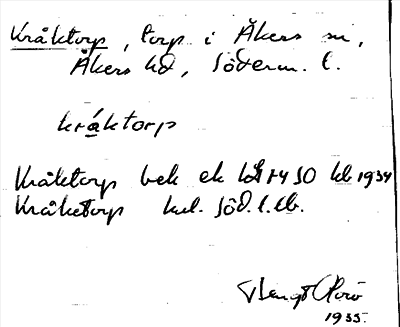 Kråktorp, torp i Åkers sn,
Åkers hd, Söderm. l.
kråktorp
Kråktorp bek ek kb 1934
Kråketorp kul. Söd. l. lb.
Bengt
1935.